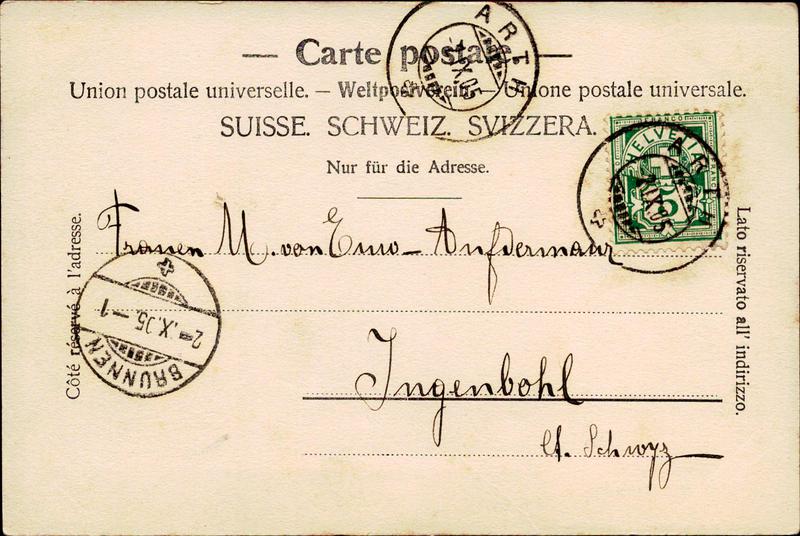 — Carte postale —
Union postale universelle. — Weltpostverein. — Unione postale universale.
SUISSE. SCHWEIZ. SVIZZERA.
Nur für die Adresse.
Côté réservé à l'adresse.
Lato riservato all' indirizzo.
ARTH
IX.05
HELVETIA
5
ARTH
IX.05
Frauen M. von Euw-Aufdermaur
Ingenbohl
Ct. Schwyz
2.X.05.-1
BRUNNEN